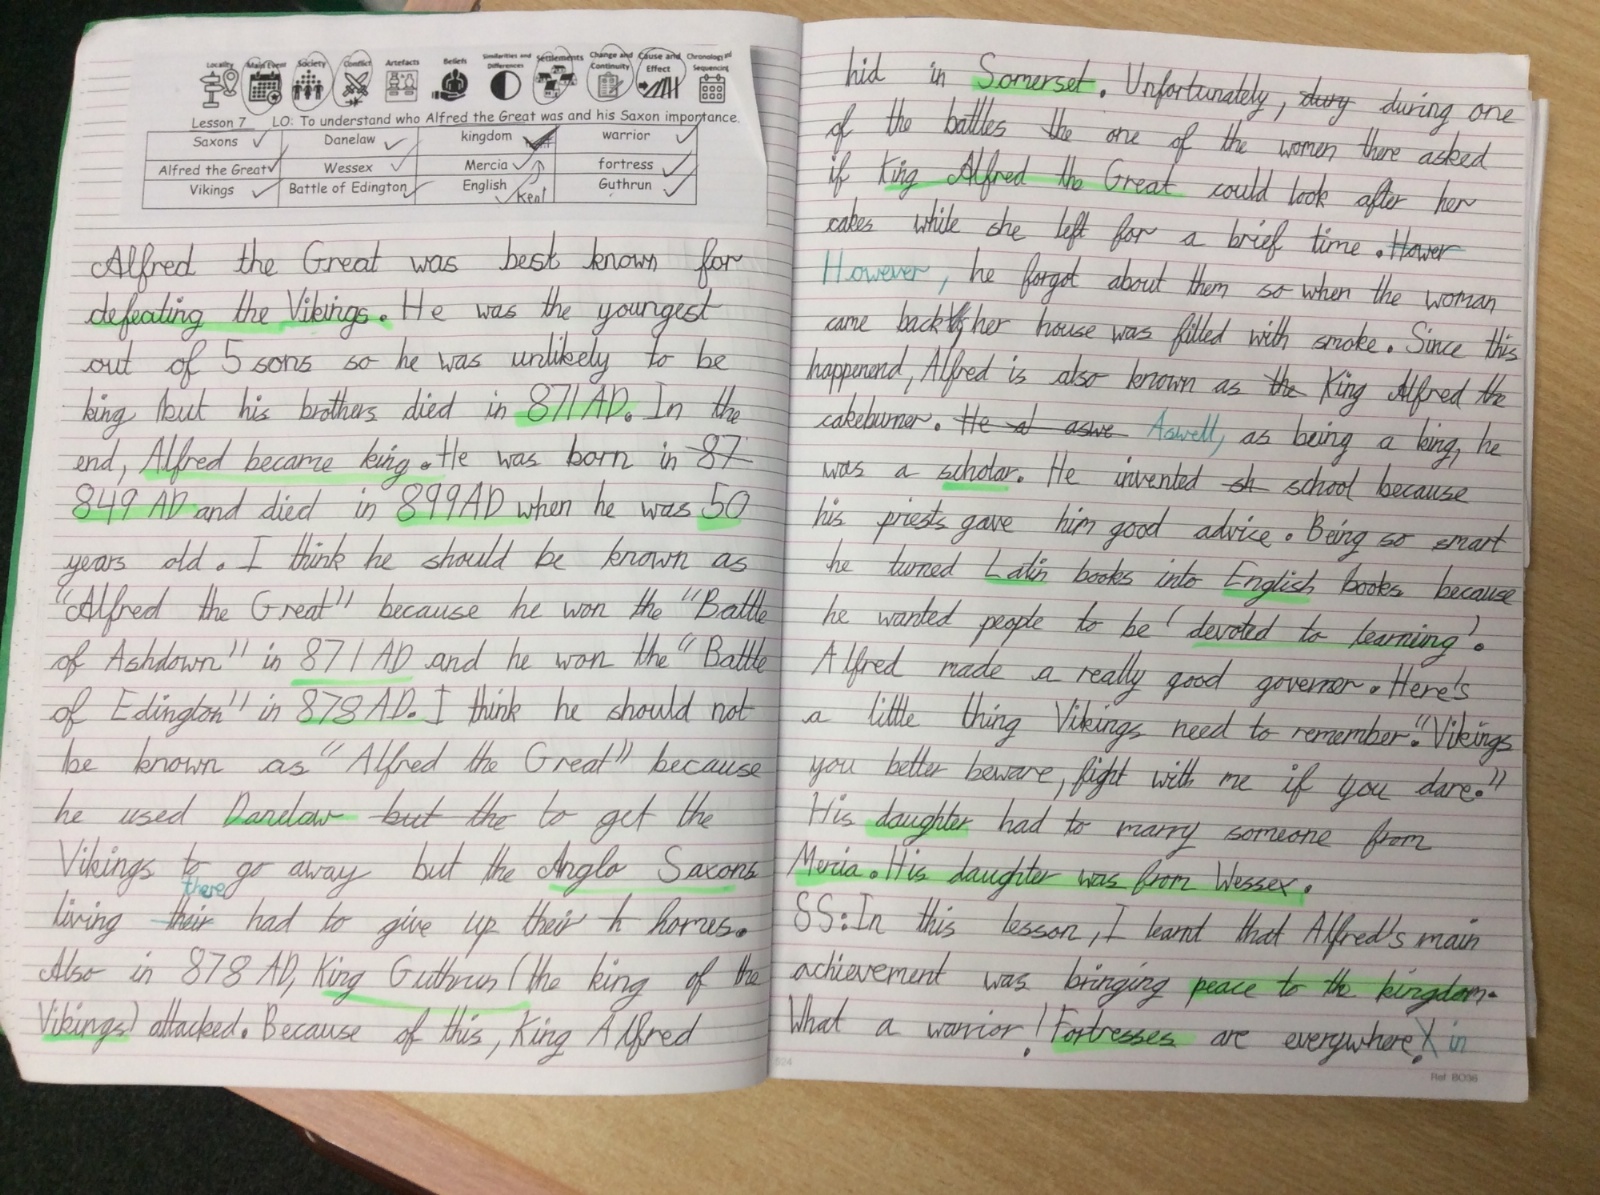 Locality Main Event Society Conflict Artefacts Beliefs Similarities and Differences Settlements Change and Continuity Cause and Effect Chronological Sequencing
Lesson 7 LO: To understand who Alfred the Great was and his Saxon importance.
Saxons Danelaw kingdom warrior
Alfred the Great Wessex Mercia fortress
Vikings Battle of Edington English Guthrun
Kent
Alfred the Great was best known for
defeating the Vikings. He was the youngest
out of 5 sons so he was unlikely to be
king but his brothers died in 871 AD. In the
end, Alfred became king. He was born in 87
849 AD and died in 899AD when he was 50
years old. I think he should be known as
"Alfred the Great" because he won the "Battle
of Ashdown" in 871 AD and he won the "Battle
of Edington" in 878 AD. I think he should not
be known as "Alfred the Great" because
he used Danelaw but the to get the
Vikings to go away but the Anglo Saxons
there
living their had to give up their h homes.
Also in 878 AD, King Guthrun (the king of the
Vikings) attacked. Because of this, King Alfred
hid in Somerset. Unfortunately, dury during one
of the battles the one of the women there asked
if King Alfred the Great could look after her
cakes while she left for a brief time. Hower
However, he forgot about them so when the woman
came back her house was filled with smoke. Since this
happenend, Alfred is also known as the King Alfred the
cakeburner. He a aswe Aswell, as being a king, he
was a scholar. He invented sh school because
his priests gave him good advice. Being so smart
he turned Latin books into English books because
he wanted people to be 'devoted to learning'.
Alfred made a really good governer. Here's
a little thing Vikings need to remember: "Vikings
you better beware, fight with me if you dare."
His daughter had to marry someone from
Mercia. His daughter was from Wessex.
SS: In this lesson, I learnt that Alfred's main
achievement was bringing peace to the kingdom.
What a warrior! Fortresses are everywhere! in
Ref BO36